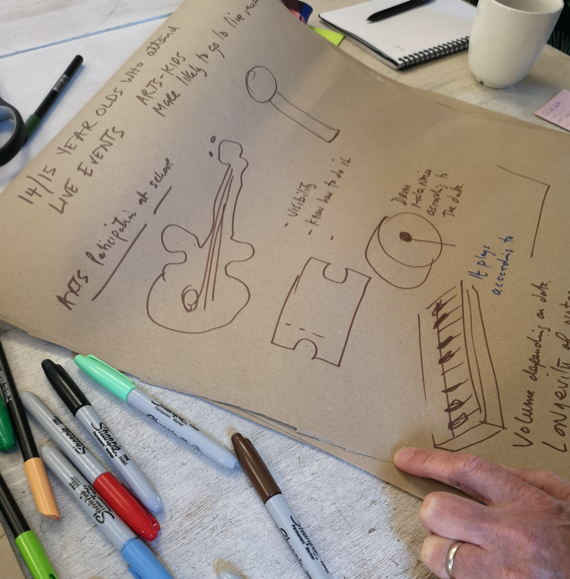 14/15 YEAR OLDS WHO attend
LIVE EVENTS
ARTS-KIDS
More likely to go to live music
ARTS Participation at school
- Visibility
- Know how to do it
Draw
according to
The data
It plays
according to
Volume depending on data
Longevity of
Sharpie
Sharpie
Sharpie